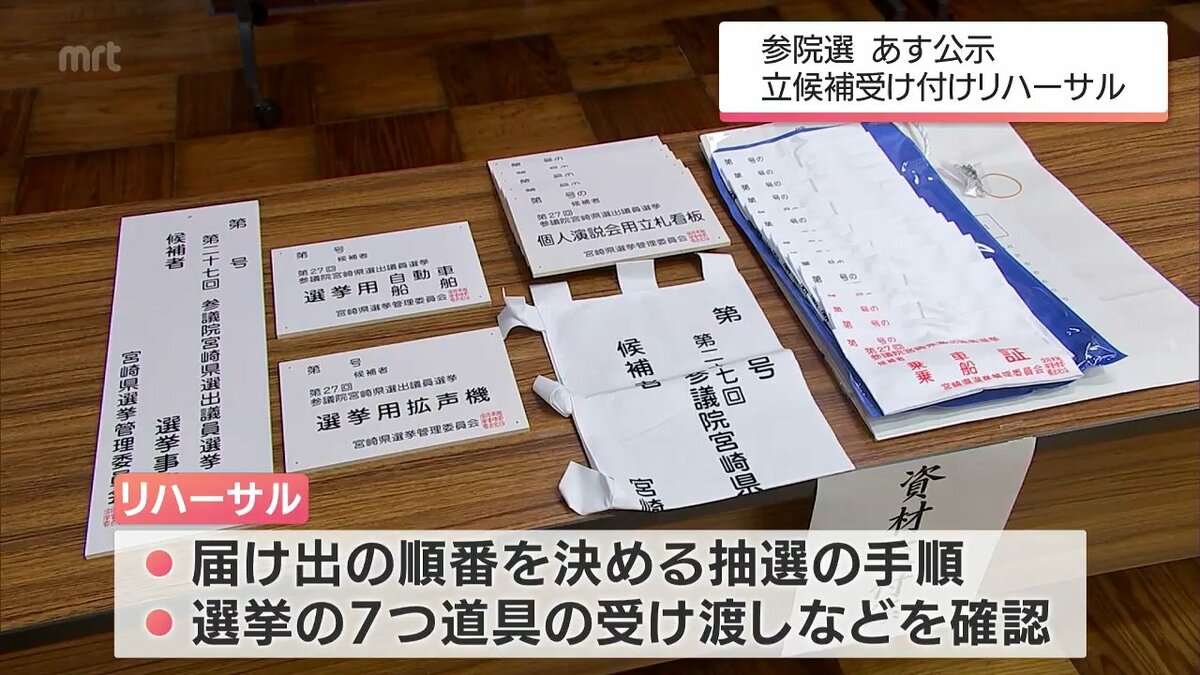 mrt
参院選 あす公示
立候補受け付けリハーサル
第 号
第二十七回 参議院宮崎県選出議員選挙
候補者
選挙事
宮崎県選挙管理委員会
第 号
候補者
第27回
参議院宮崎県選出議員選挙
選挙用自動車
船舶
宮崎県選挙管理委員会
第 号
候補者
第27回
参議院宮崎県選出議員選挙
選挙用拡声機
宮崎県選挙管理委員会
第 号の
第 号の
第 号の
候補者
第27回
参議院宮崎県選出議員選挙
個人演説会用立札看板
宮崎県選挙管理委員会
第 号
第二十七回
参議院宮崎県
候補者
宮崎
第 号の
第 号の
第 号の
第 号の
第27回
候補者
乗車
乗船
証
宮崎県選挙管理委員会
資材
リハーサル
届け出の順番を決める抽選の手順
選挙の7つ道具の受け渡しなどを確認